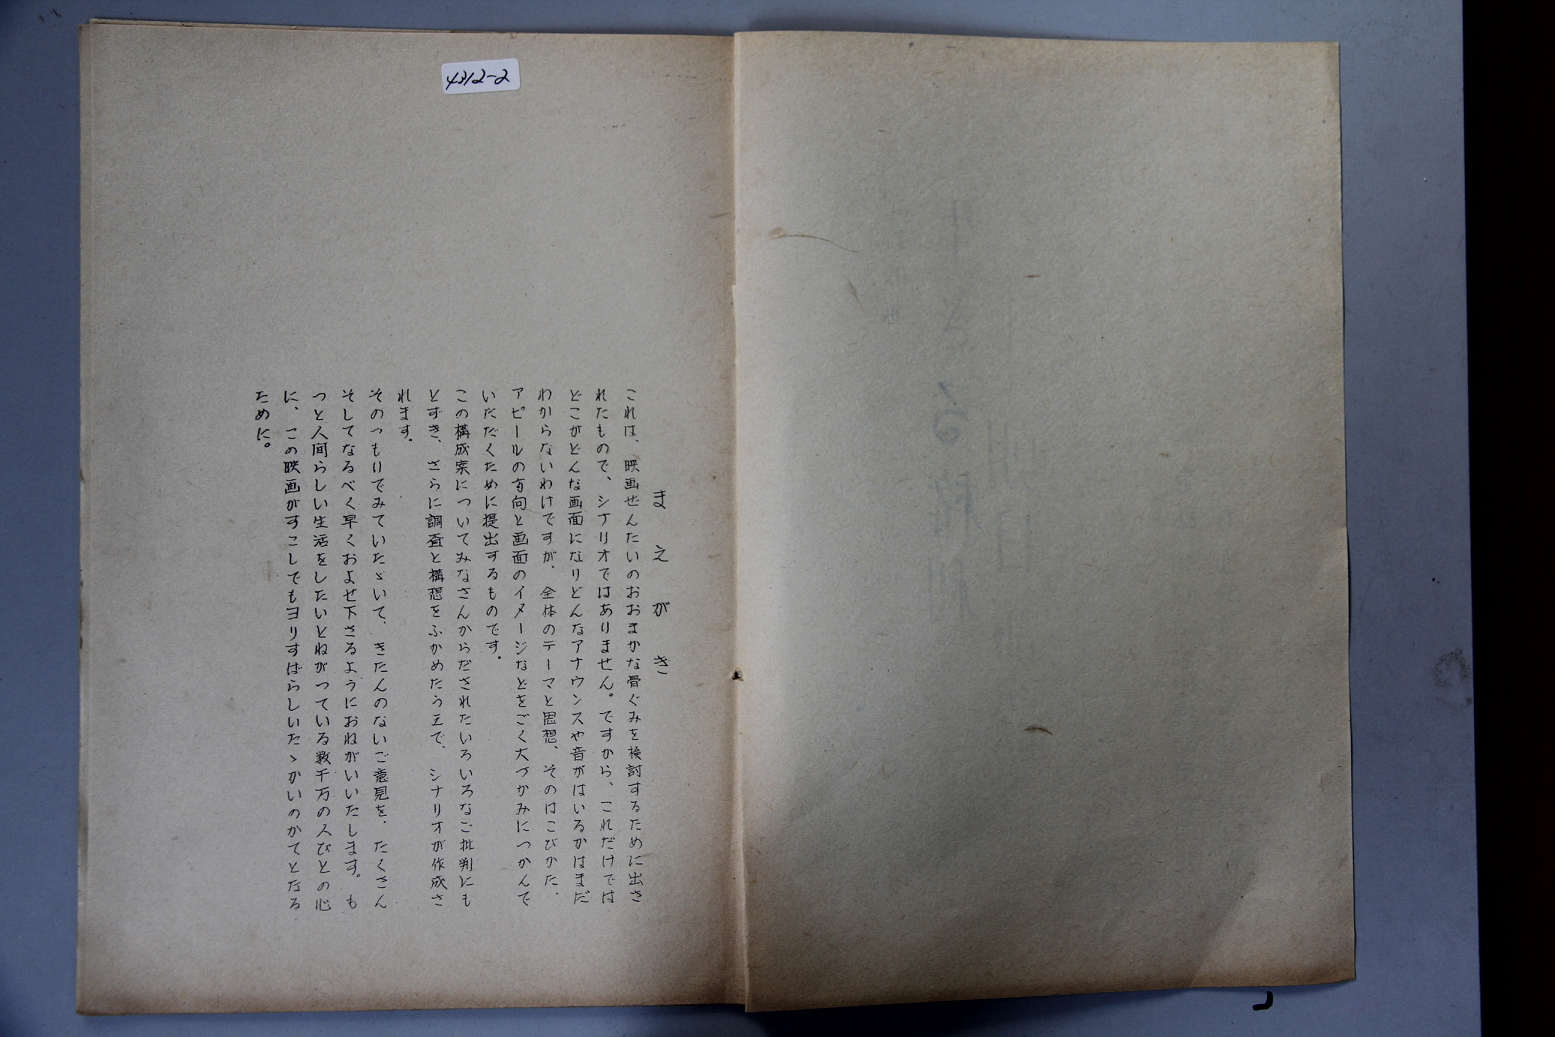 4312-2
まえがき
これは、映画せんたいのおおまかな骨ぐみを検討するために出さ
れたもので、シナリオではありません。ですから、これだけでは
どこがどんな画面になりどんなアナウンスや音がはいるかはまだ
わからないわけですが、全体のテーマと思想、そのはこびかた、
アピールの方向と画面のイメージなどをごく大づかみにつかんで
いただくために提出するものです。
この構成案についてみなさんからだされたいろいろなご批判にも
とずき、さらに調査と構想をふかめたうえで、シナリオが作成さ
れます。
そのつもりでみていたゞいて、きたんのないご意見を、たくさん
そしてなるべく早くおよせ下さるようにおねがいいたします。も
つと人間らしい生活をしたいとねがつている数千万の人びとの心
に、この映画がすこしでもヨリすばらしいたゝかいのかてとなる
ために。